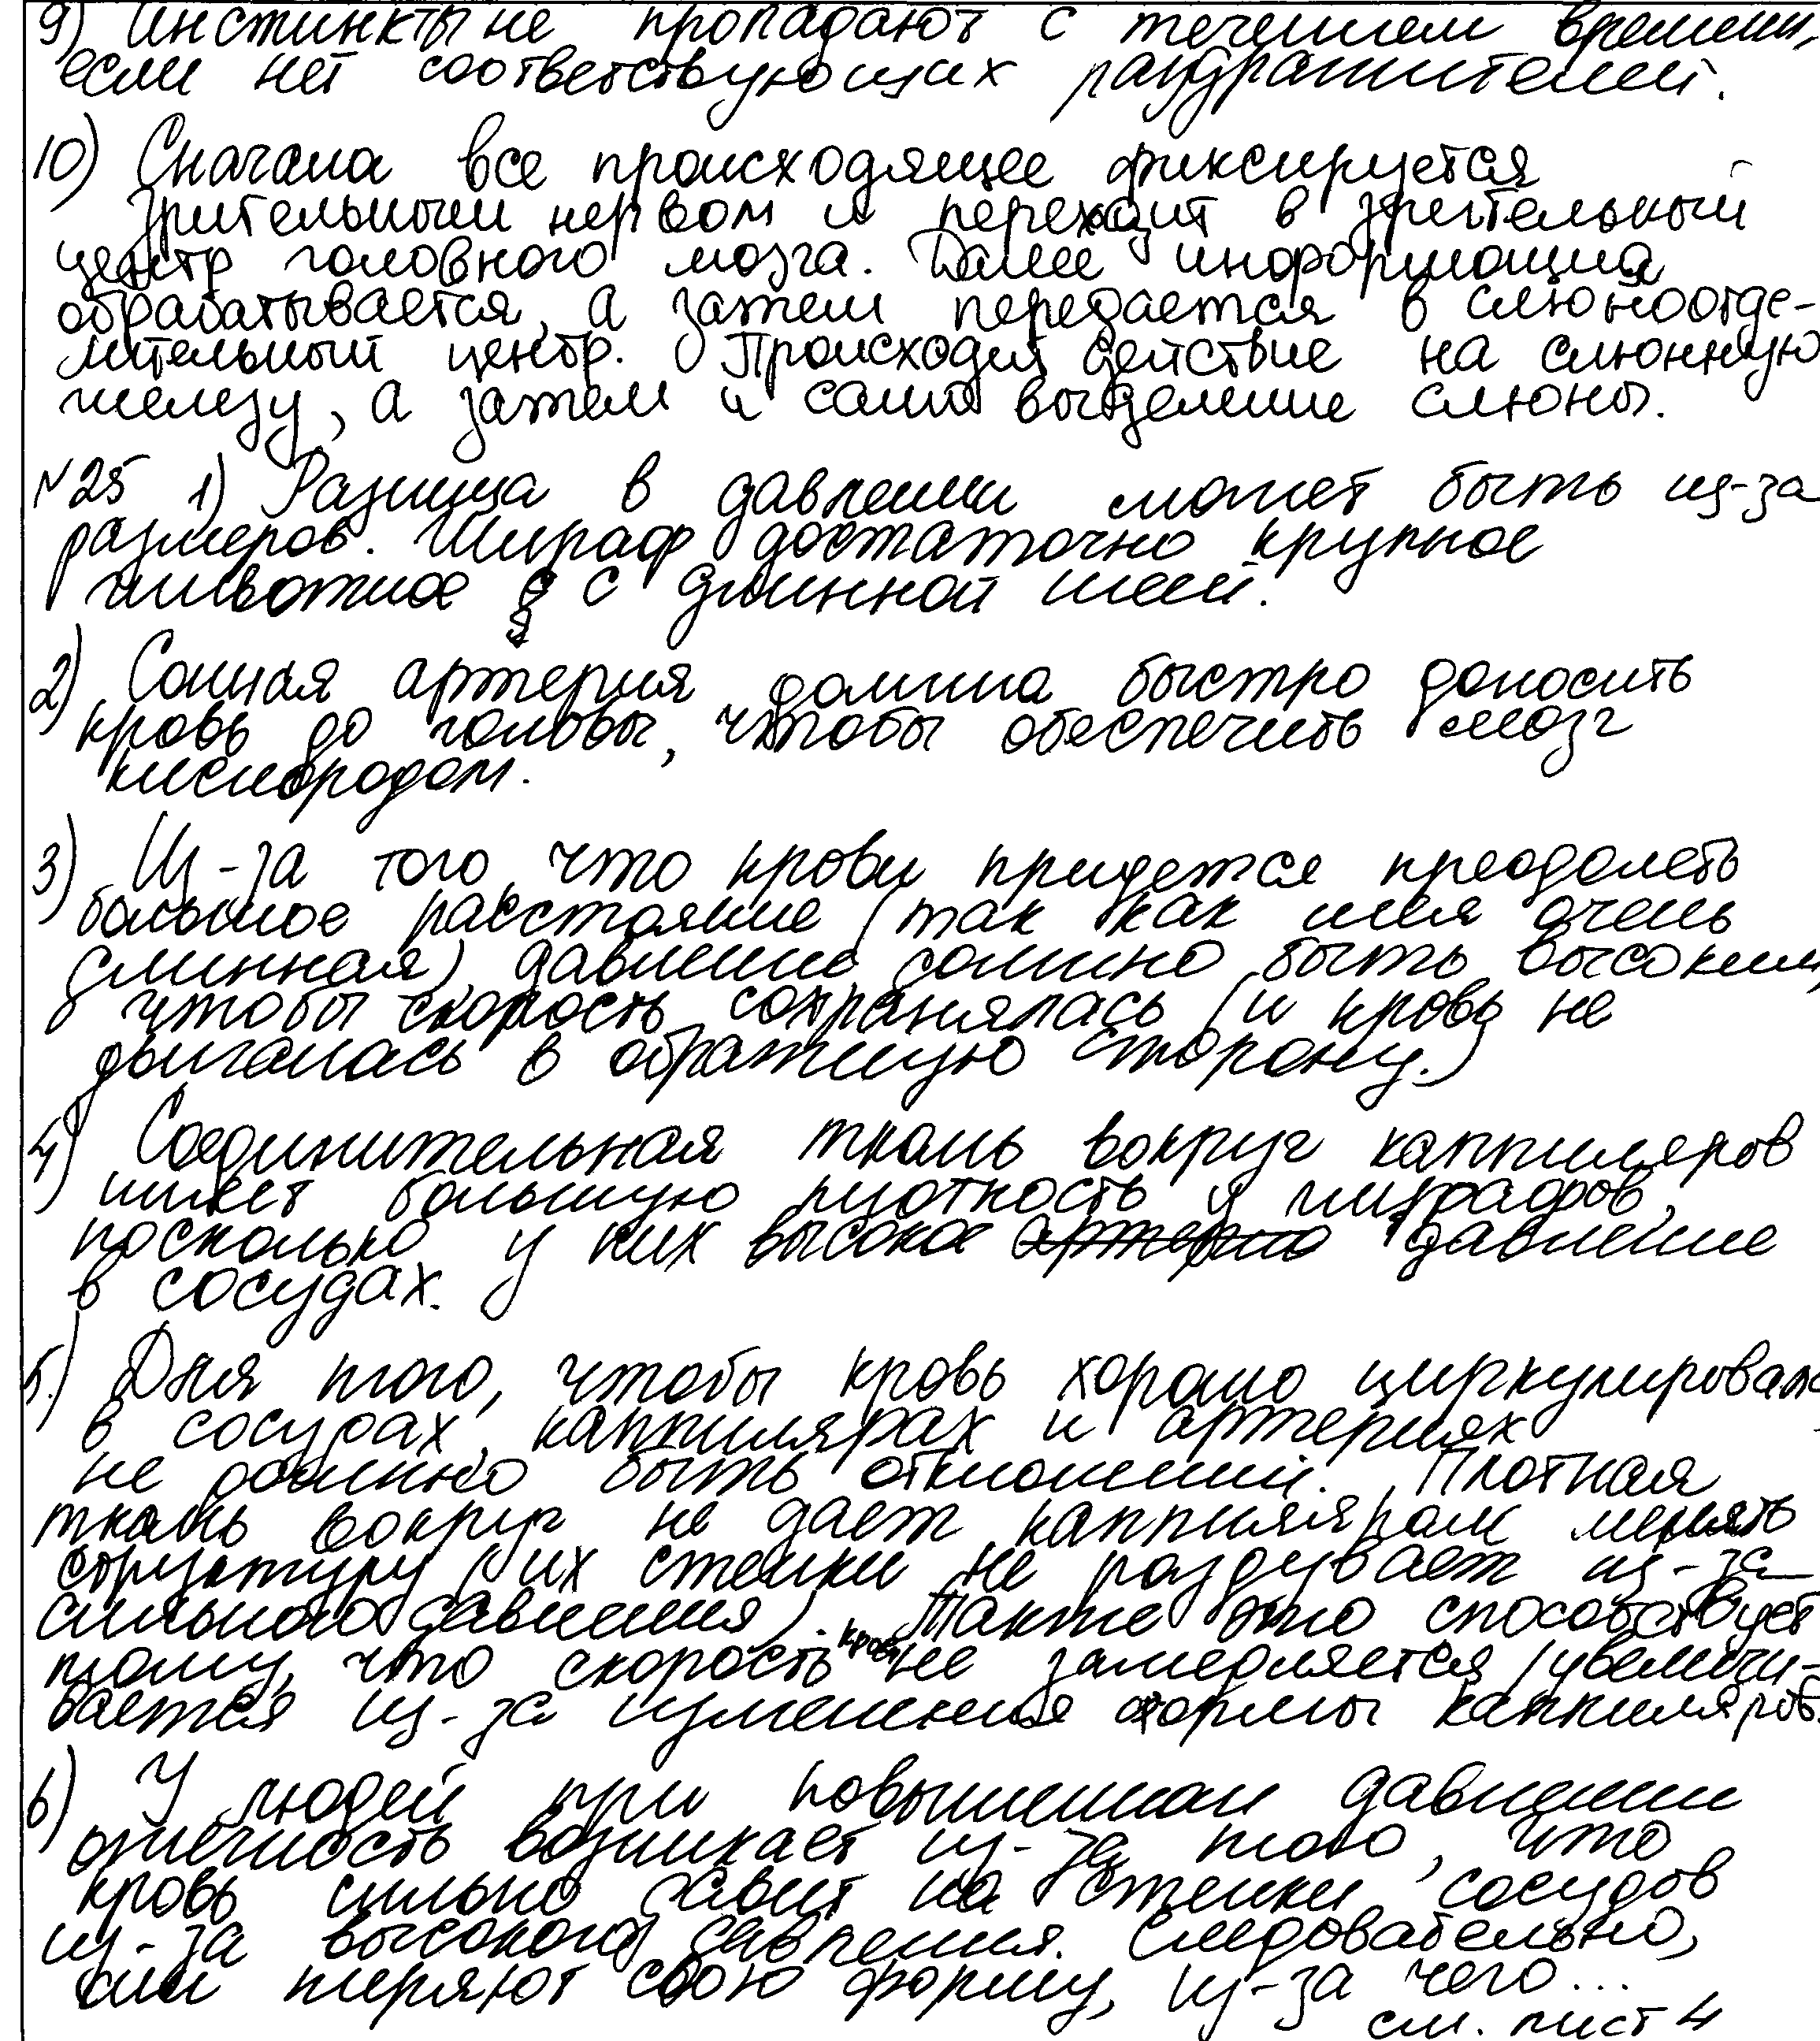 9) Инстинкты не пропадают с течением времени,
если нет соответствующих раздражителей.
10) Сначала все происходящее фиксируется
зрительным нервом и переходит в зрительный
центр головного мозга. Далее информация
обрабатывается, а затем передается в слюноотде-
лительный центр. Происходит действие на слюнную
железу, а затем и само выделение слюны.
№25 1) Разница в давлении может быть из-за
размеров. Жираф достаточно крупное
животное с длинной шеей.
2) Сонная артерия должна быстро доносить
кровь до головы, чтобы обеспечить мозг
кислородом.
3) Из-за того, что крови придется преодолеть
большое расстояние (так как шея очень
длинная), давление должно быть высоким,
чтобы скорость сохранялась (и кровь не
двигалась в обратную сторону.)
4) Соединительная ткань вокруг каппиляров
имеет большую плотность у жирафов,
поскольку у них высокое артерио давление
в сосудах.
5.) Для того, чтобы кровь хорошо циркулировала
в сосудах, каппилярах и артериях
не должно быть отклонений. Плотная
ткань вокруг не дает каппилярам менять
структуру (их стенки не раздувает из-за
сильного давления). Также это способствует
тому, что скорость крови не замедляется / увеличи-
вается из-за изменения формы каппиляров.
6) У людей при повышенном давлении
отечность возникает из-за того, что
кровь сильно давит на стенки сосудов
из-за высокого давления. Следовательно,
они теряют свою форму, из-за чего...
см. лист 4